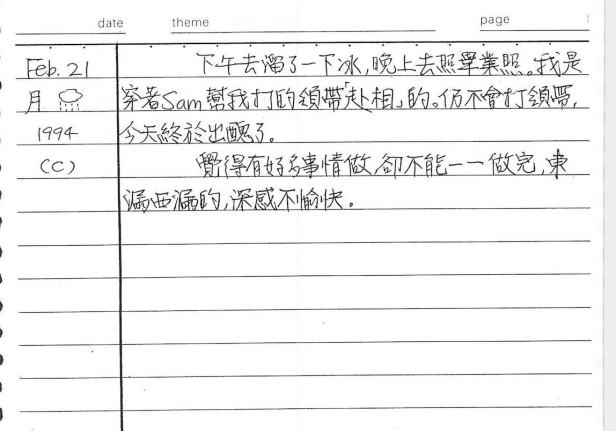 date theme page
Feb. 21 下午去溜了一下冰,晚上去照畢業照。我是
月 穿著Sam幫我打的領帶「赴相」的。仍不會打領帶,
1994 今天終於出醜了。
(C) 覺得有好多事情做,卻不能一一做完,東
漏西漏的,深感不愉快。